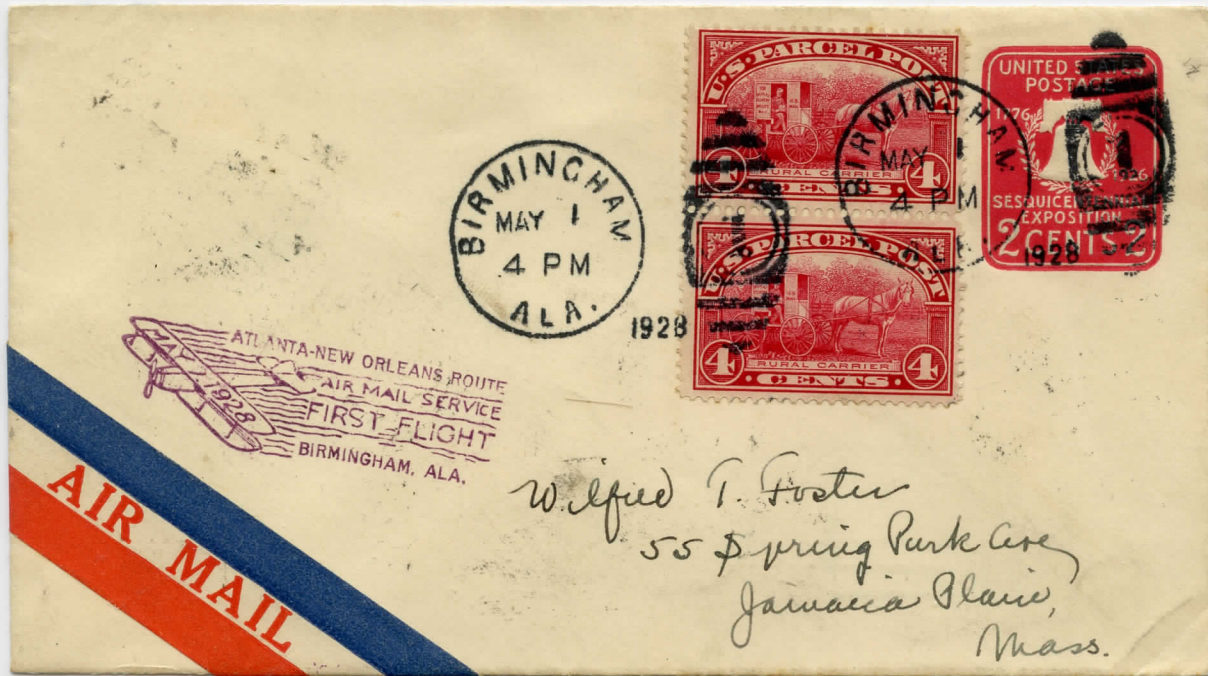 U.S. PARCEL POST
RURAL CARRIER
4 CENTS 4
U.S. PARCEL POST
RURAL CARRIER
4 CENTS 4
UNITED STATES
POSTAGE
1776 1926
SESQUICENTENNIAL
EXPOSITION
2 CENTS 2
BIRMINGHAM
MAY 1
4 PM
ALA.
1928
BIRMINGHAM
MAY 1
4 PM
1928
1
1
MAY 1 1928
ATLANTA-NEW ORLEANS ROUTE
AIR MAIL SERVICE
FIRST FLIGHT
BIRMINGHAM, ALA.
AIR MAIL
Wilfred T. Foster
55 Spring Park Ave,
Jamaica Plain,
Mass.